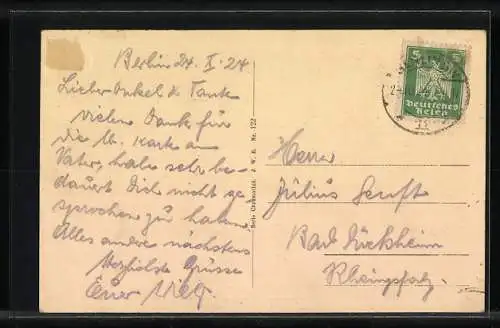 Berlin 24. X. 24
Lieber Onkel & Tante
Vielen Dank für
die lb. Karte an
Vater, habe sehr be-
dauert Dich nicht ge-
sprochen zu haben.
Alles andere nächstens
Herzlichste Grüsse
Euer Willy
J. W. B. Nr. 122
Herrn
Julius Senft
Bad Dürkheim
Rheinpfalz.
5 5
Deutsches
Reich